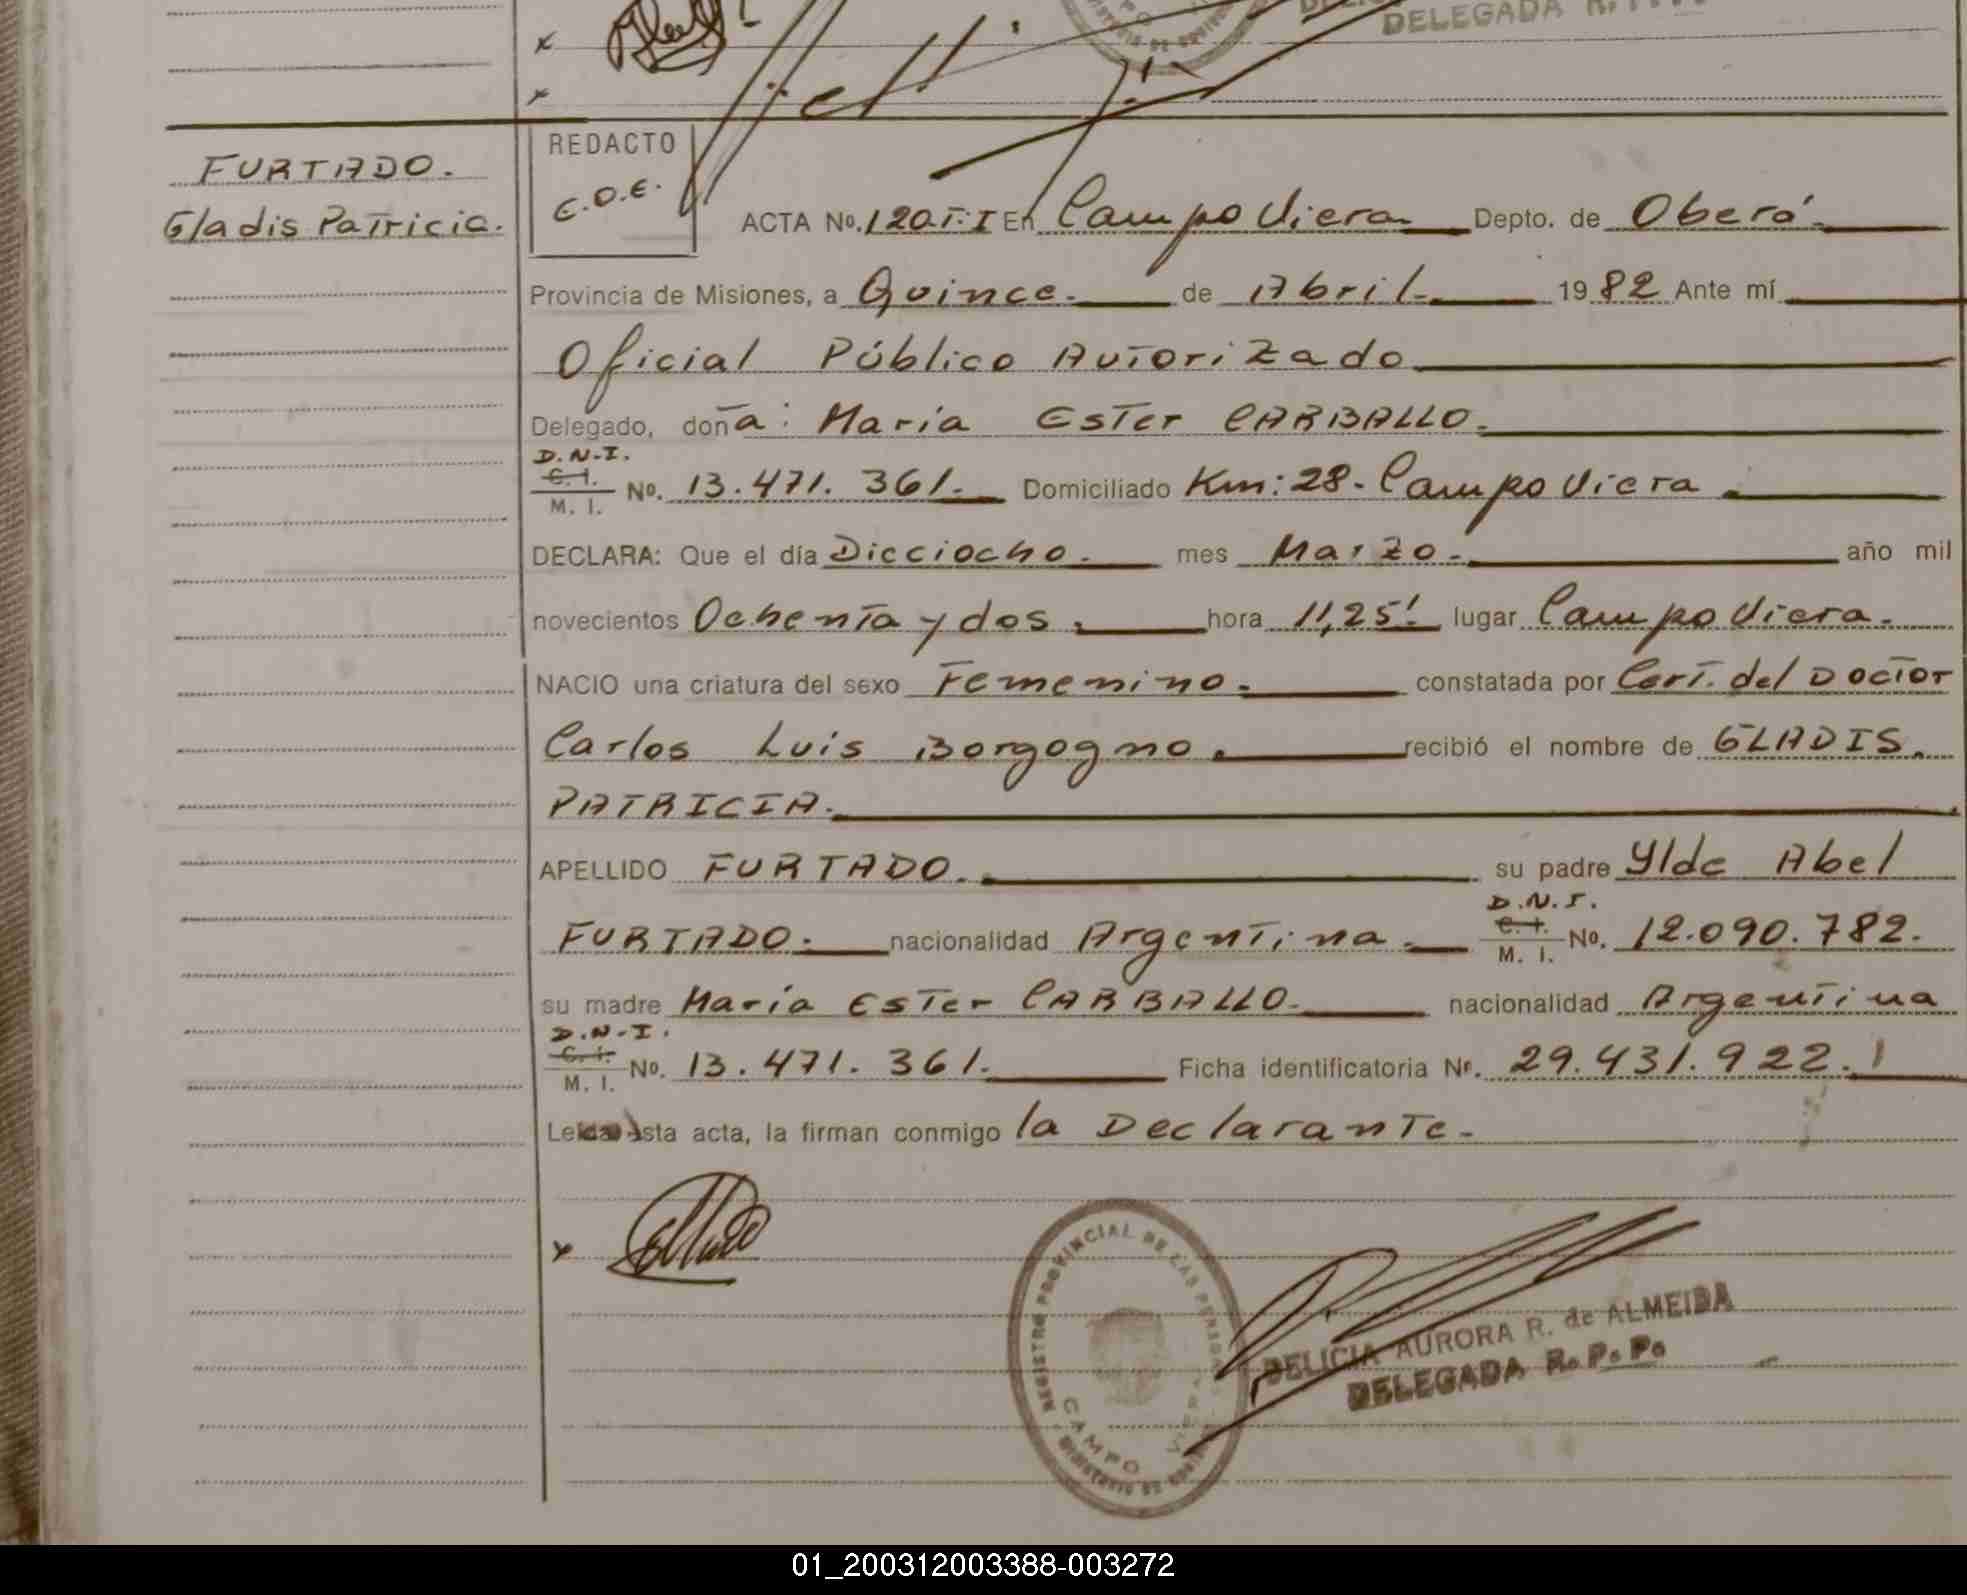 DELEGADA R.P.P.
REDACTO
FURTADO.
Gladis Patricia.
E.O.E.
ACTA No. 120 T: I En Campo Viera Depto. de Oberá
Provincia de Misiones, a Quince. de Abril. 1982 Ante mí
Oficial Público Autorizado
Delegado, doña: María Ester CARBALLO.
D.N.I.
C. I.
M. I. No. 13.471.361. Domiciliado Km: 28- Campo Viera
DECLARA: Que el día Dieciocho. mes Marzo. año mil
novecientos Ochenta y dos. hora 11,25! lugar Campo Viera.
NACIO una criatura del sexo Femenino. constatada por Cert. del Doctor
Carlos Luis Borgogno. recibió el nombre de GLADIS.
PATRICIA.
APELLIDO FURTADO. su padre Ylde Abel
D.N.I.
FURTADO. nacionalidad Argentina. C. I.
M. I. No. 12.090.782.
su madre María Ester CARBALLO. nacionalidad Argentina
D.N.I.
C. I.
M. I. No. 13.471.361. Ficha identificatoria Nr. 29.431.922.
Leída esta acta, la firman conmigo la Declarante.
REGISTRO PROVINCIAL DE LAS PERSONAS
CAMPO VIERA
DELICIA AURORA R. de ALMEIDA
DELEGADA R.P.P.
01_200312003388-003272